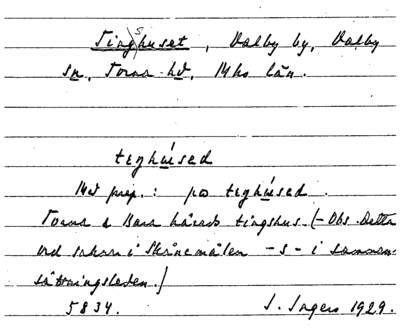 Ting/s/huset, Dalby by, Dalby
sn, Torna hd, Mhs län.
teghúsed
Med prep.: på teghúsed.
Torna & Bara härads tingshus. (- Obs. Detta
ord saknar i Skånemålen -s- i samman-
sättningsleden.)
5834. I. Ingers 1929.